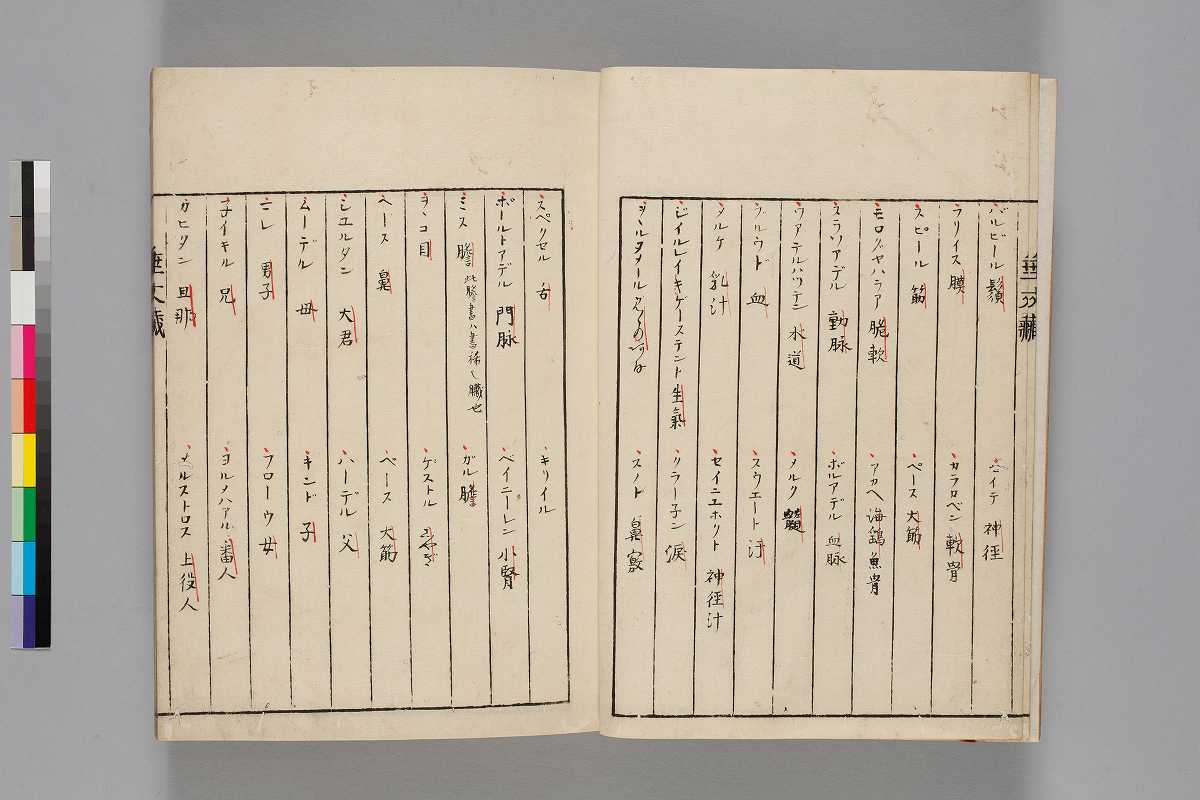 バルビール 鬚
ハイテ 神径
フリイス 膜
カラカベン 軟骨
スピール 筋
ペース 大筋
モログヤハラア 脆軟
アカヘ 海鷂魚骨
スラツアデル 動脉
ボルアデル 血脉
ワアテルハツテン 水道
メルク 髄
ブルウド 血
スウエート 汗
メルケ 乳汁
セイニエホクト 神径汁
ジイルレイキゲーステント 生氣
タラー子ン 涙
スノト 鼻
スペクセル 舌
キリイル
ポールトアデル 門脉
ベイニーレン 小腎
ミス 膽 此膽書ハ書稀ク臓也
ガル 膽
ヲヽコ 目
ゲストル
ヘース 鼻
ペース 大筋
ジユルタン 大君
ハーデル 父
ムーデル 母
キンド 子
ニレ 男子
フローウ 女
子イキル 兄
ヨルメハアル 番人
カヒタン 旦那
メルストロス 上役人